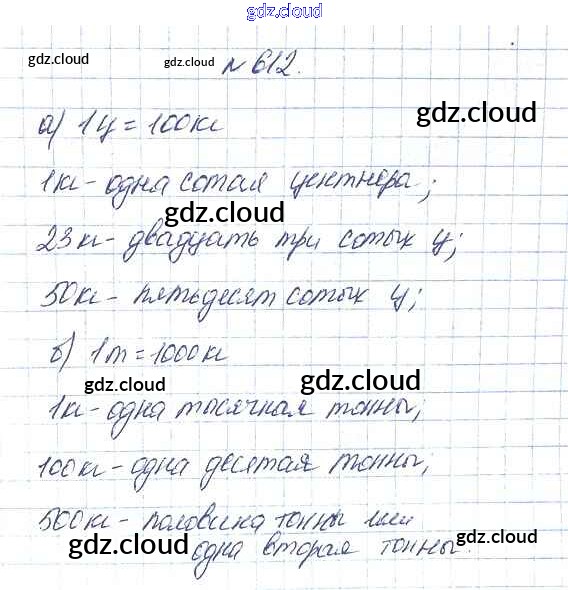 gdz.cloud
gdz.cloud gdz.cloud №612.
gdz.cloud
а) 1ц = 100кг
1кг - одна сотая центнера;
gdz.cloud
23кг - двадцать три сотых ц;
gdz.cloud
50кг - пятьдесят сотых ц;
б) 1т = 1000кг
gdz.cloud gdz.cloud
1кг - одна тысячная тонны;
100кг - одна десятая тонны;
500кг - половина тонны или
gdz.cloud gdz.cloud
одна вторая тонны.